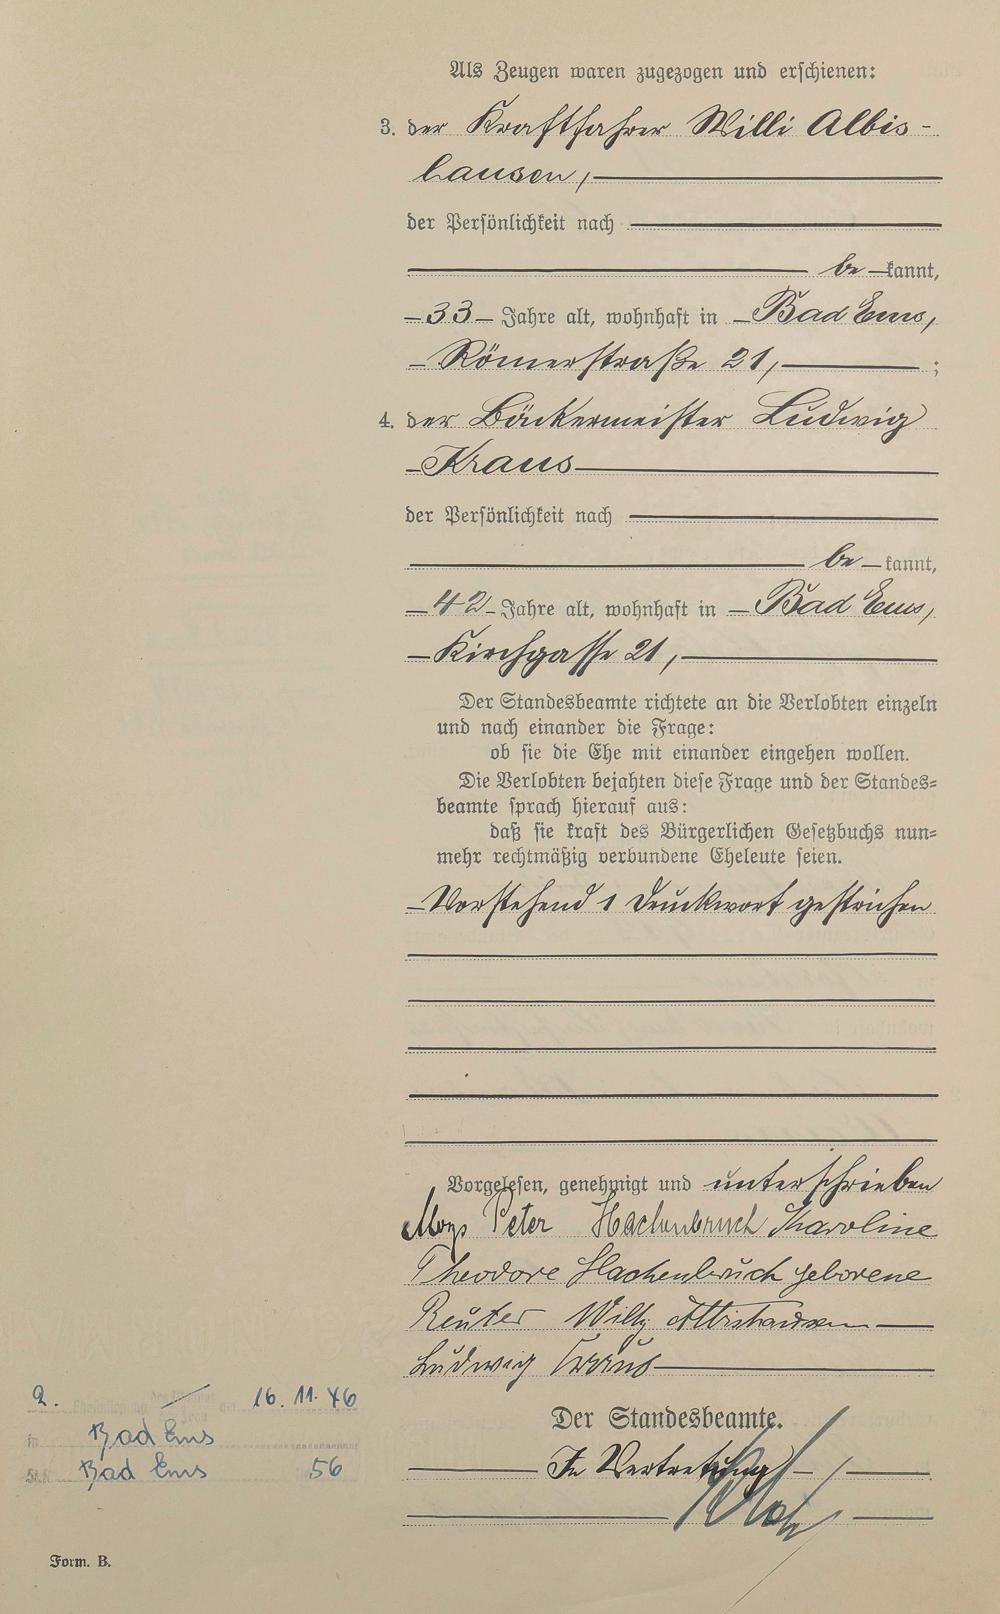 Als Zeugen waren zugezogen und erschienen:
3. der Kraftfahrer Willi Albis-
hausen,
der Persönlichkeit nach
be kannt,
33 Jahre alt, wohnhaft in Bad Ems,
Römerstraße 21, ;
4. der Bäckermeister Ludwig
Kraus
der Persönlichkeit nach
be kannt,
42 Jahre alt, wohnhaft in Bad Ems,
Kirchgasse 21,
Der Standesbeamte richtete an die Verlobten einzeln
und nach einander die Frage:
ob sie die Ehe mit einander eingehen wollen.
Die Verlobten bejahten diese Frage und der Standes-
beamte sprach hierauf aus:
daß sie kraft des Bürgerlichen Gesetzbuchs nun-
mehr rechtmäßig verbundene Eheleute seien.
Vorstehend 1 Druckwort gestrichen
Vorgelesen, genehmigt und unterschrieben
Aloys Peter Hachenbruch Karoline
Theodore Hachenbruch geborene
Reuter Willy Albishausen
Ludwig Kraus
Der Standesbeamte.
In Vertretung
2. 16. 11. 46
in Bad Ems
Bad Ems 56
Form. B.